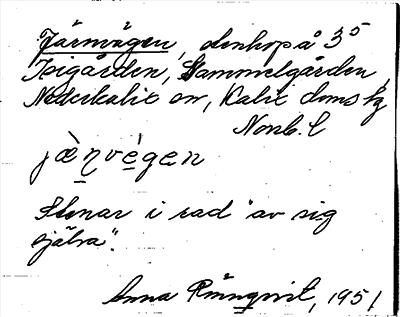 Järnvägen, denhop å 3⁵
Isigården, Gammelgården
Nederkalix sn, Kalix doms hg
Norrb. l
jæ̀ṇvègen
Stenar i rad "av sig
själva".
Anna Rönnqvist, 1951